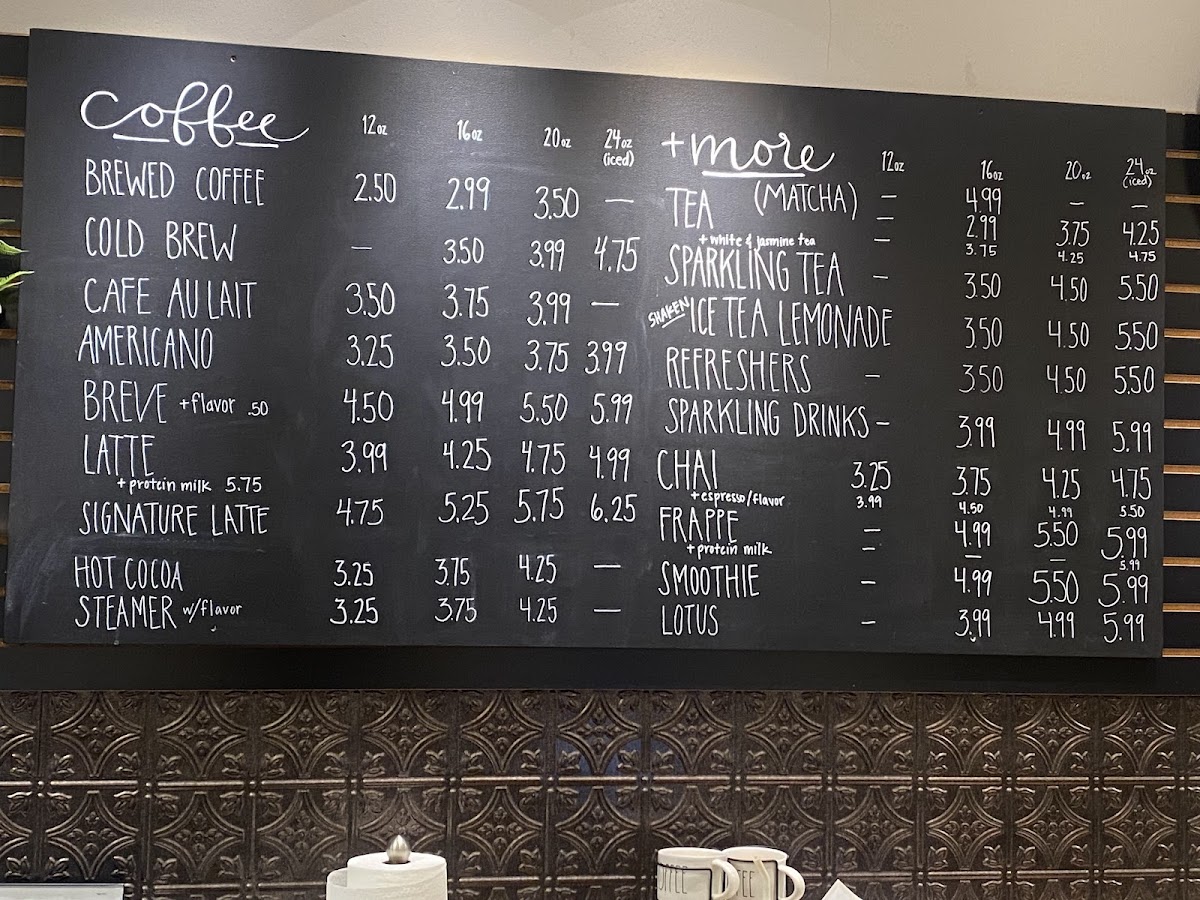 coffee 12oz 16oz 20oz 24oz (iced)
BREWED COFFEE 2.50 2.99 3.50 —
COLD BREW — 3.50 3.99 4.75
CAFE AU LAIT 3.50 3.75 3.99 —
AMERICANO 3.25 3.50 3.75 3.99
BREVE +flavor .50 4.50 4.99 5.50 5.99
LATTE 3.99 4.25 4.75 4.99
+protein milk 5.75
SIGNATURE LATTE 4.75 5.25 5.75 6.25
HOT COCOA 3.25 3.75 4.25 —
STEAMER w/flavor 3.25 3.75 4.25 —
+more 12oz 16oz 20oz 24oz (iced)
(MATCHA) — 4.99 — —
TEA — 2.99 3.75 4.25
+white & jasmine tea — 3.75 4.25 4.75
SPARKLING TEA — 3.50 4.50 5.50
SHAKEN ICE TEA LEMONADE 3.50 4.50 5.50
REFRESHERS — 3.50 4.50 5.50
SPARKLING DRINKS — 3.99 4.99 5.99
CHAI 3.25 3.75 4.25 4.75
+espresso/flavor 3.99 4.50 4.99 5.50
FRAPPE — 4.99 5.50 5.99
+protein milk — — — 5.99
SMOOTHIE — 4.99 5.50 5.99
LOTUS — 3.99 4.99 5.99
OFFEE EE